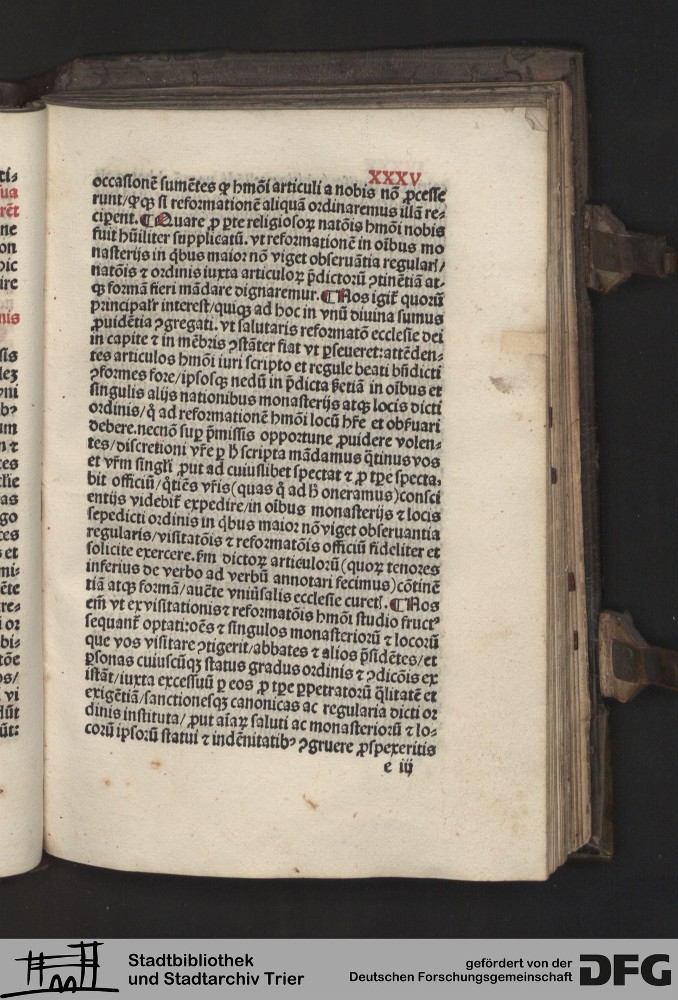 XXXV
occasionē sumētes qꝫ hmōi articuli a nobis nō ꝓcesse
runt/qꝫqꝫ si reformationē aliquā ordinaremus illā re-
cipent. ¶ Quare ꝓ pte religiosoꝝ natōis hmōi nobis
fuit hūiliter supplicatū. vt reformationē in oībus mo
nasterijs in qbus maior nō viget obseruātia regularis/
natōis ⁊ ordinis iuxta articuloꝝ pdictorū ↄtinētiā at-
qꝫ formā fieri mādare dignaremur. ¶ Nos igit quorū
principalr interest/quiqꝫ ad hoc in vnū diuina sumus
ꝓuidētia ↄgregati. vt salutaris reformatō ecclesie dei
in capite ⁊ in mēbris ↄstāter fiat vt ꝑseueret: attēden-
tes articulos hmōi iuri scripto et regule beati bn̄dicti
ↄformes fore/ipsosqꝫ nedū in pdicta ꝓuētia in oībus et
singulis alijs nationibus monasterijs atqꝫ locis dicti
ordinis/q̄ ad reformationē hmōi locū hr̄e et obẜuari
debere. necnō suꝑ pmissis opportune ꝓuidere volen-
tes/discretioni vr̄e ꝑ h̄ scripta mādamus q̄tinus vos
et vr̄m singli ꝓut ad cuiuslibet spectat ⁊ ꝓ tꝑe specta-
bit officiū/q̄tiēs vr̄is (quas q̄ ad h̄ oneramus) consci
entijs videbit expedire/in oībus monasterijs ⁊ locis
sepedicti ordinis in qbus maior nō viget obseruantia
regularis/visitatōis ⁊ reformatōis officiū fideliter et
solicite exercere. ẜm dictoꝝ articulorū (quoꝝ tenores
inferius de verbo ad verbū annotari fecimus) cōtinē
tiā atqꝫ formā/auc̄te vniūsalis ecclesie curetis. ¶ Nos
em̄ vt ex visitationis ⁊ reformatōis hmōi studio fructꝰ
sequant optati: oēs ⁊ singulos monasteriorū ⁊ locorū
que vos visitare ↄtigerit/abbates ⁊ alios psidētes/et
ꝑsonas cuiuscūqꝫ status gradus ordinis ⁊ ↄdicōis ex
istāt/iuxta excessuū ꝑ eos ꝓ tꝑe ꝑpetratorū q̄litatē et
exigētiā/sanctionesqꝫ canonicas ac regularia dicti or
dinis instituta/ꝓut aīaꝝ saluti ac monasteriorū ⁊ lo-
corū ipsorū statui ⁊ indēnitatibꝰ ↄgruere ꝓspexeritis
e iij
Stadtbibliothek
und Stadtarchiv Trier
gefördert von der
Deutschen Forschungsgemeinschaft
DFG